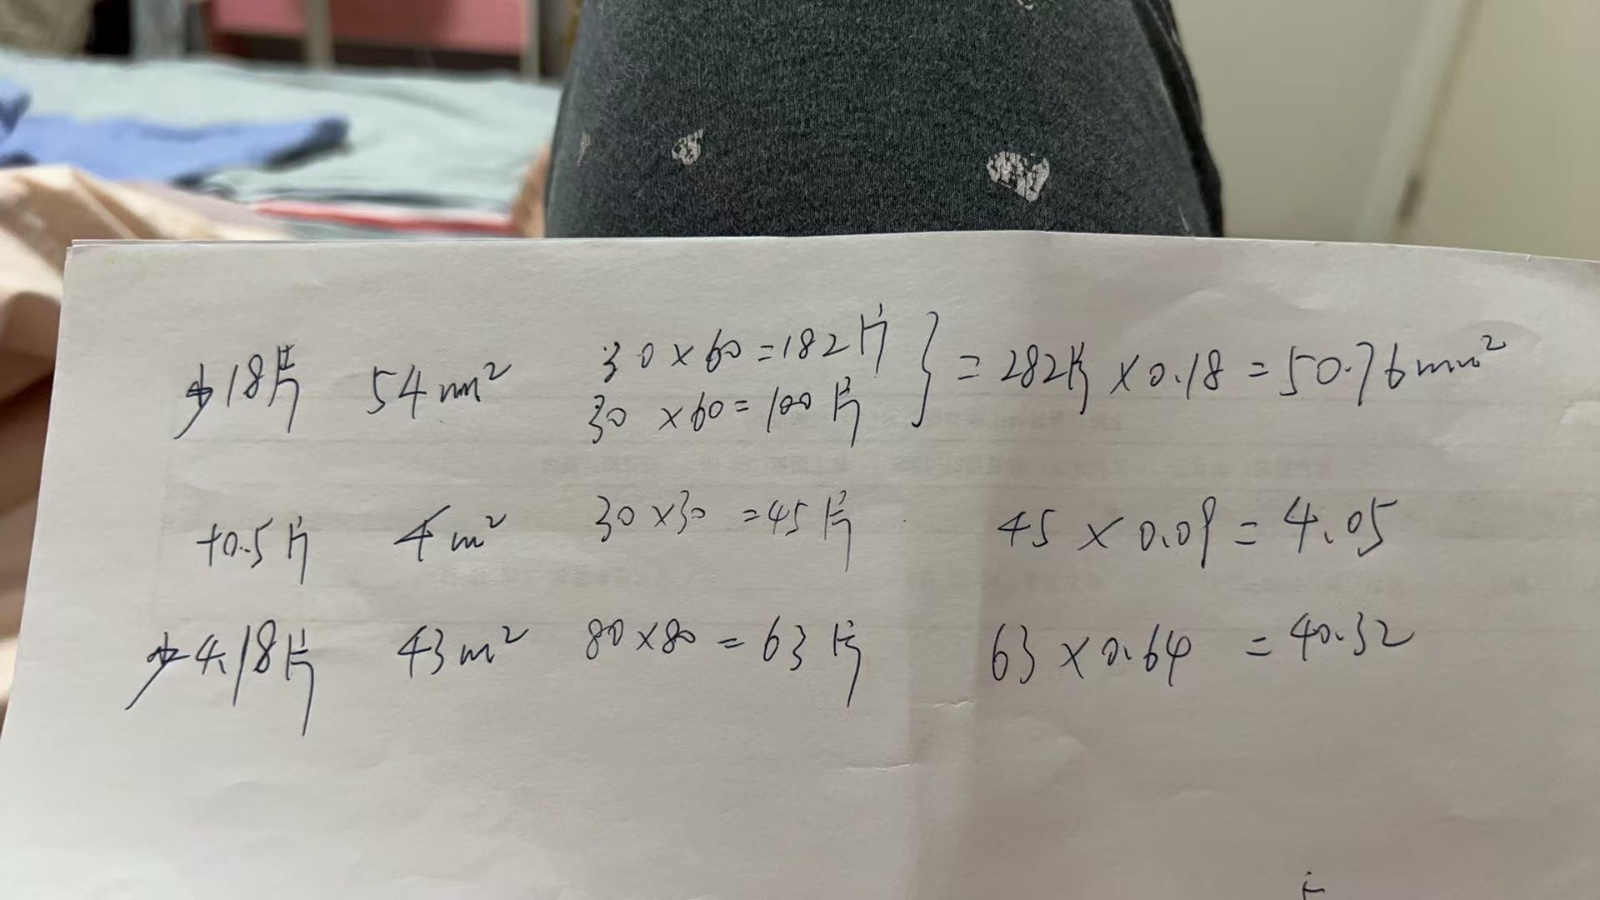 少18片 54m² 30×60=182片 } =282片×0.18=50.76m²
30×60=100片
+0.5片 4m² 30×30=45片 45×0.09=4.05
少4.18片 43m² 80×80=63片 63×0.64=40.32